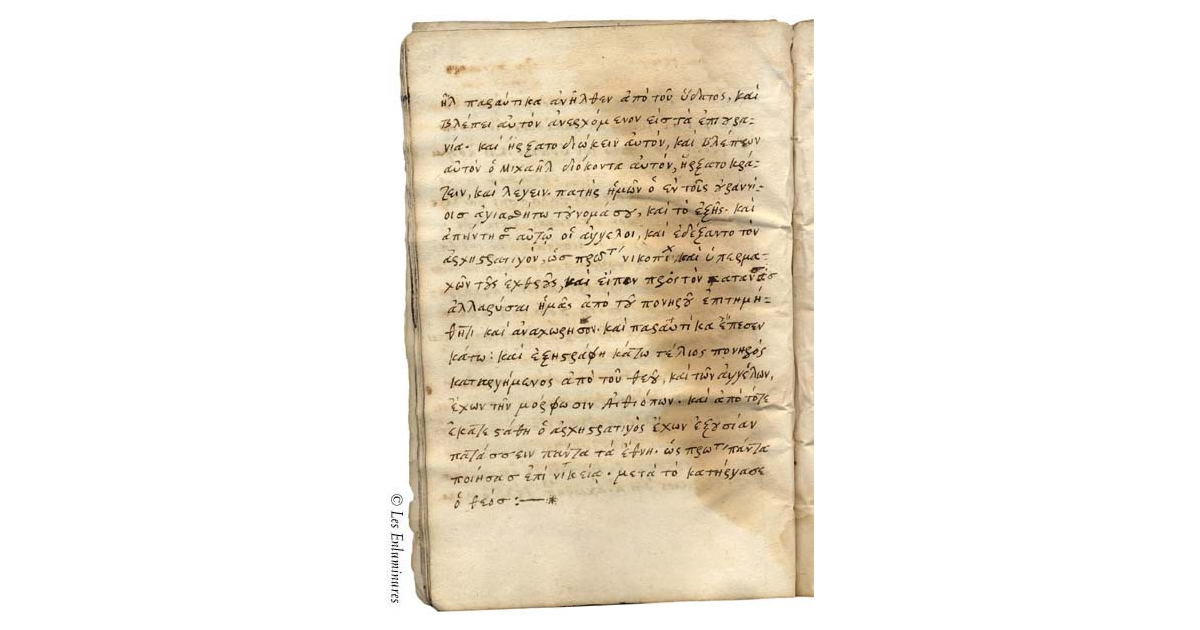 ἢλ παραύτικα ἀνῆλθεν ἀπὸ τοῦ ὕδατος, καὶ
βλέπει αὐτὸν ἀνερχόμενον εἰς τὰ ἐπουρά-
νια· καὶ ἤρξατο διώκειν αὐτόν, καὶ βλέπων
αὐτὸν ὁ μιχαὴλ διόκοντα αὐτόν, ἤρξατο κρά-
ζειν, καὶ λέγειν· πατὴρ ἡμῶν ὁ ἐν τοῖς οὐρανν-
οισ ἁγιασθήτω τοὔνομά σου, καὶ τὸ ἑξῆς· καὶ
αὐτῷ οἱ ἄγγελοι, καὶ ἐδέξαντο τὸν
ἀρχηστρατιγόν, ὡς καὶ ὑπερμα-
χῶν τοὺς ἐχθρούς, καὶ εἶπεν πρὸς τὸν
ἀπὸ τοῦ πονηροῦ ἐπιτημή-
θητι καὶ ἀναχώρησον· καὶ παραυτίκα ἔπεσεν
κάτω: καὶ κάτω τέλιος πονηρός
καταργήμενος ἀπὸ τοῦ θεοῦ, καὶ τῶν ἀγγέλων,
ἔχων τὴν μόρφωσιν Αἰθιόπων· καὶ ἀπὸ τότε
ὁ ἀρχηστρατιγὸς ἔχων ἐξουσίαν
πατάσσειν πάντα τὰ ἔθνη· ὡς πάντα
ποιήσας ἐπὶ νίκεία· μετὰ τὸ κατήργασε
ὁ θεός :—*
© Les Enluminures